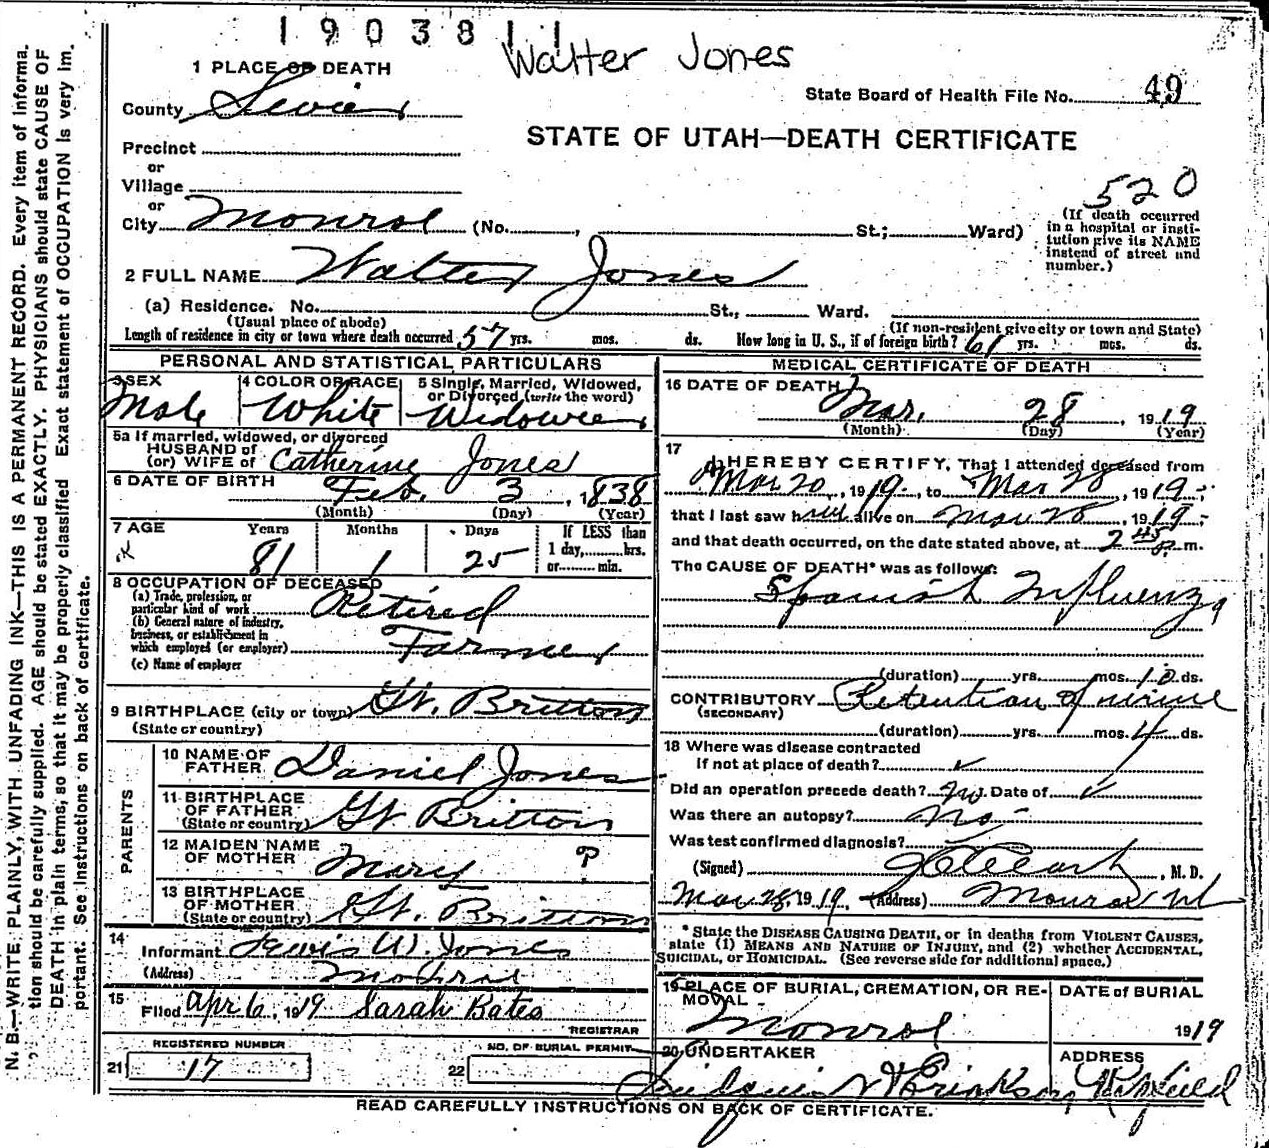 1903811
Walter Jones
1 PLACE OF DEATH
State Board of Health File No. 49
County Sevier
STATE OF UTAH—DEATH CERTIFICATE
Precinct
or
Village
or
520
City Monroe (No. , St.; Ward)
(If death occurred
in a hospital or insti-
tution give its NAME
instead of street and
number.)
2 FULL NAME Walter Jones
(a) Residence. No. St., Ward.
(Usual place of abode)
(If non-resident give city or town and State)
Length of residence in city or town where death occurred 57 yrs. mos. ds. How long in U. S., if of foreign birth? 61 yrs. mos. ds.
PERSONAL AND STATISTICAL PARTICULARS
3 SEX
Male
4 COLOR OR RACE
White
5 Single, Married, Widowed,
or Divorced (write the word)
Widower
5a If married, widowed, or divorced
HUSBAND of
(or) WIFE of Catherine Jones
6 DATE OF BIRTH
Feb. 3, 1838
(Month) (Day) (Year)
7 AGE Years Months Days
81 1 25
If LESS than
1 day, hrs.
or min.
8 OCCUPATION OF DECEASED
(a) Trade, profession, or
particular kind of work Retired
(b) General nature of industry,
business, or establishment in
which employed (or employer) Farmer
(c) Name of employer
9 BIRTHPLACE (city or town) Gt. Britton
(State or country)
PARENTS
10 NAME OF
FATHER Daniel Jones
11 BIRTHPLACE
OF FATHER
(State or country) Gt. Britton
12 MAIDEN NAME
OF MOTHER Mary ?
13 BIRTHPLACE
OF MOTHER
(State or country) Gt. Britton
14
Informant Lewis W. Jones
(Address) Monroe
15
Filed Apr 6, 1919 Sarah Bates
REGISTRAR
REGISTERED NUMBER
21 17
NO. OF BURIAL PERMIT
22
MEDICAL CERTIFICATE OF DEATH
16 DATE OF DEATH
Mar. 28, 1919
(Month) (Day) (Year)
17
I HEREBY CERTIFY, That I attended deceased from
Mar 20, 1919, to Mar 28, 1919;
that I last saw him alive on Mar 28, 1919;
and that death occurred, on the date stated above, at 2 45 P. m.
The CAUSE OF DEATH* was as follows:
Spanish Influenza
(duration) yrs. mos. 10 ds.
CONTRIBUTORY Retention of urine
(SECONDARY)
(duration) yrs. mos. 4 ds.
18 Where was disease contracted
If not at place of death? ✓
Did an operation precede death? No. Date of ✓
Was there an autopsy? No
Was test confirmed diagnosis?
(Signed) , M. D.
Mar 28, 1919. (Address) Monroe Ut
* State the DISEASE CAUSING DEATH, or in deaths from VIOLENT CAUSES,
state (1) MEANS AND NATURE OF INJURY, and (2) whether ACCIDENTAL,
SUICIDAL, or HOMICIDAL. (See reverse side for additional space.)
19 PLACE OF BURIAL, CREMATION, OR RE-
MOVAL
Monroe
DATE of BURIAL
1919
20 UNDERTAKER
ADDRESS
Richfield
READ CAREFULLY INSTRUCTIONS ON BACK OF CERTIFICATE.
N. B.—WRITE PLAINLY, WITH UNFADING INK—THIS IS A PERMANENT RECORD. Every item of informa-
tion should be carefully supplied. AGE should be stated EXACTLY. PHYSICIANS should state CAUSE OF
DEATH in plain terms, so that it may be properly classified. Exact statement of OCCUPATION is very im-
portant. See Instructions on back of certificate.